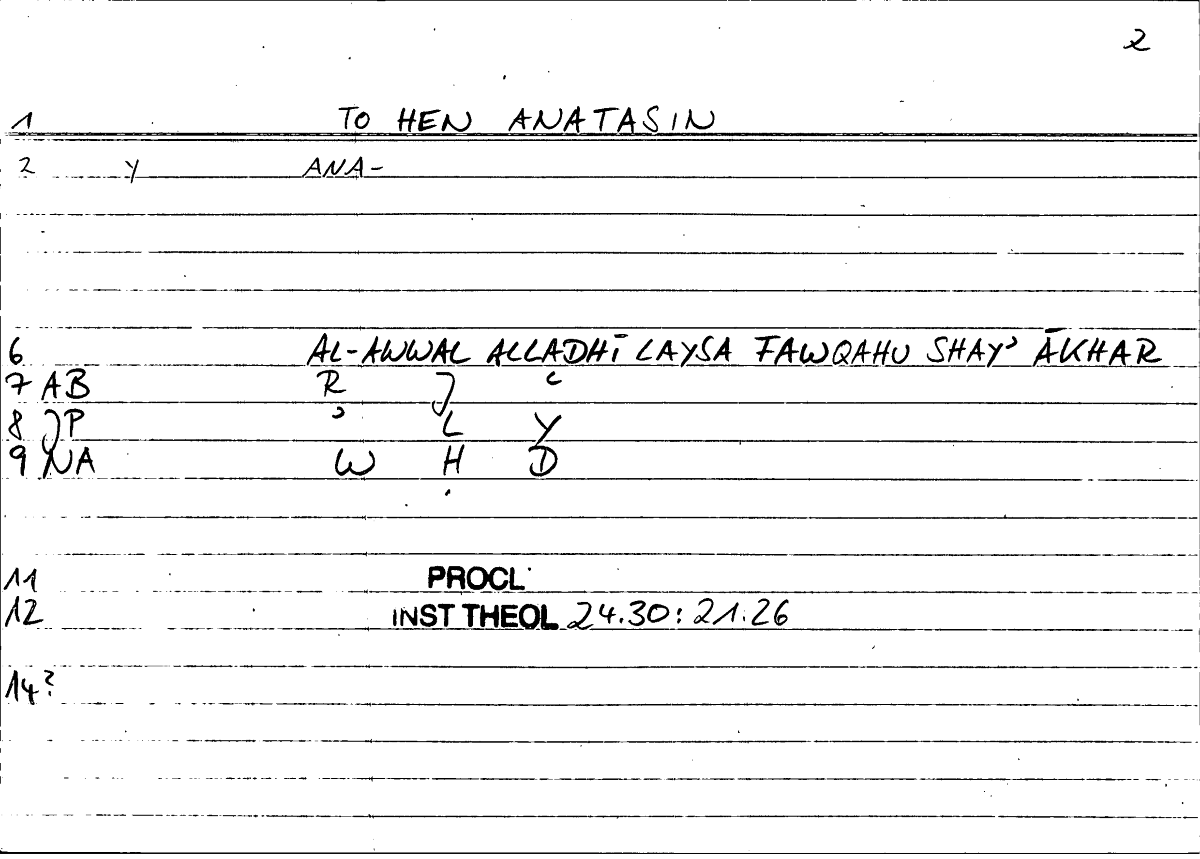 2
1 TO HEN ANATASIN
2 Y ANA-
6 AL-AWWAL ALLADHĪ LAYSA FAWQAHU SHAYʾ ĀKHAR
7 AB R J ʿ
8 JP ʾ L Y
9 NA W Ḥ D
11 PROCL
12 INST THEOL 24.30: 21.26
14?